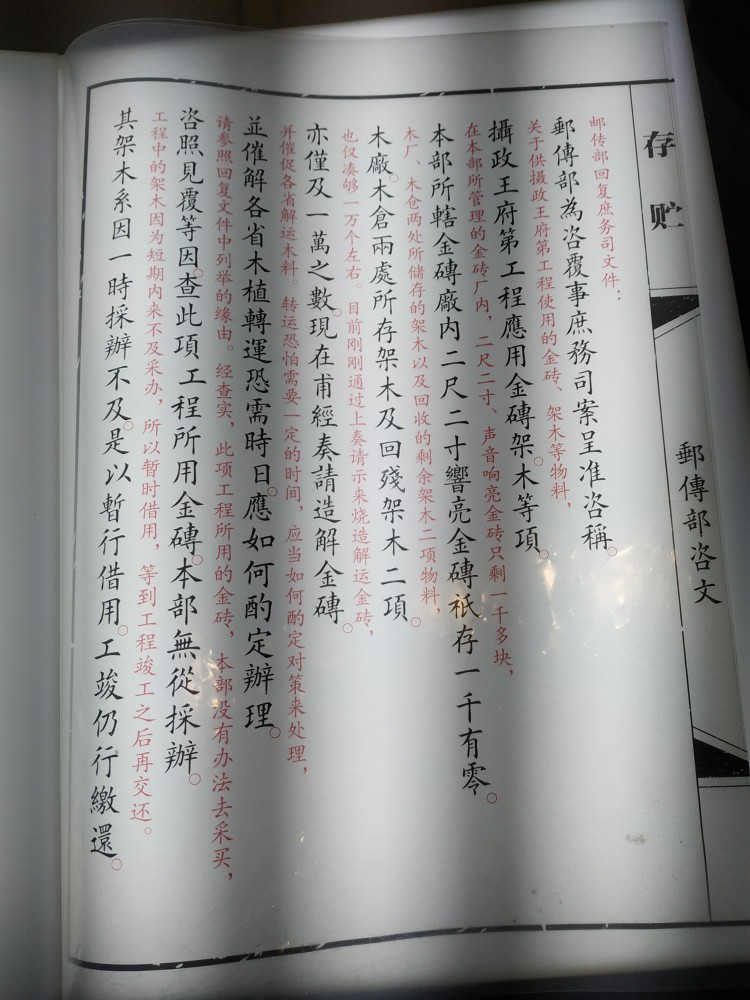 存贮
郵傳部咨文
邮传部回复庶务司文件：
郵傳部為咨覆事庶務司案呈准咨稱。
关于供摄政王府第工程使用的金砖、架木等物料，
攝政王府第工程應用金磚。架木等項。
在本部所管理的金砖厂内，二尺二寸、声音响亮金砖只剩一千多块，
本部所轄金磚廠内二尺二寸響亮金磚祇存一千有零。
木厂、木仓两处所储存的架木以及回收的剩余架木二项物料，
木廠。木倉兩處所存架木及回殘架木二項。
也仅凑够一万个左右。目前刚刚通过上奏请示来烧造解运金砖，
亦僅及一萬之數。現在甫經奏請造解金磚。
并催促各省解运木料。转运恐怕需要一定的时间，应当如何酌定对策来处理，
並催解各省木植轉運恐需時日。應如何酌定辦理。
请参照回复文件中列举的缘由。经查实，此项工程所用的金砖，本部没有办法去采买，
咨照見覆等因。查此項工程所用金磚。本部無從採辦。
工程中的架木因为短期内来不及采办，所以暂时借用，等到工程竣工之后再交还。
其架木系因一時採辦不及。是以暫行借用。工竣仍行繳還。